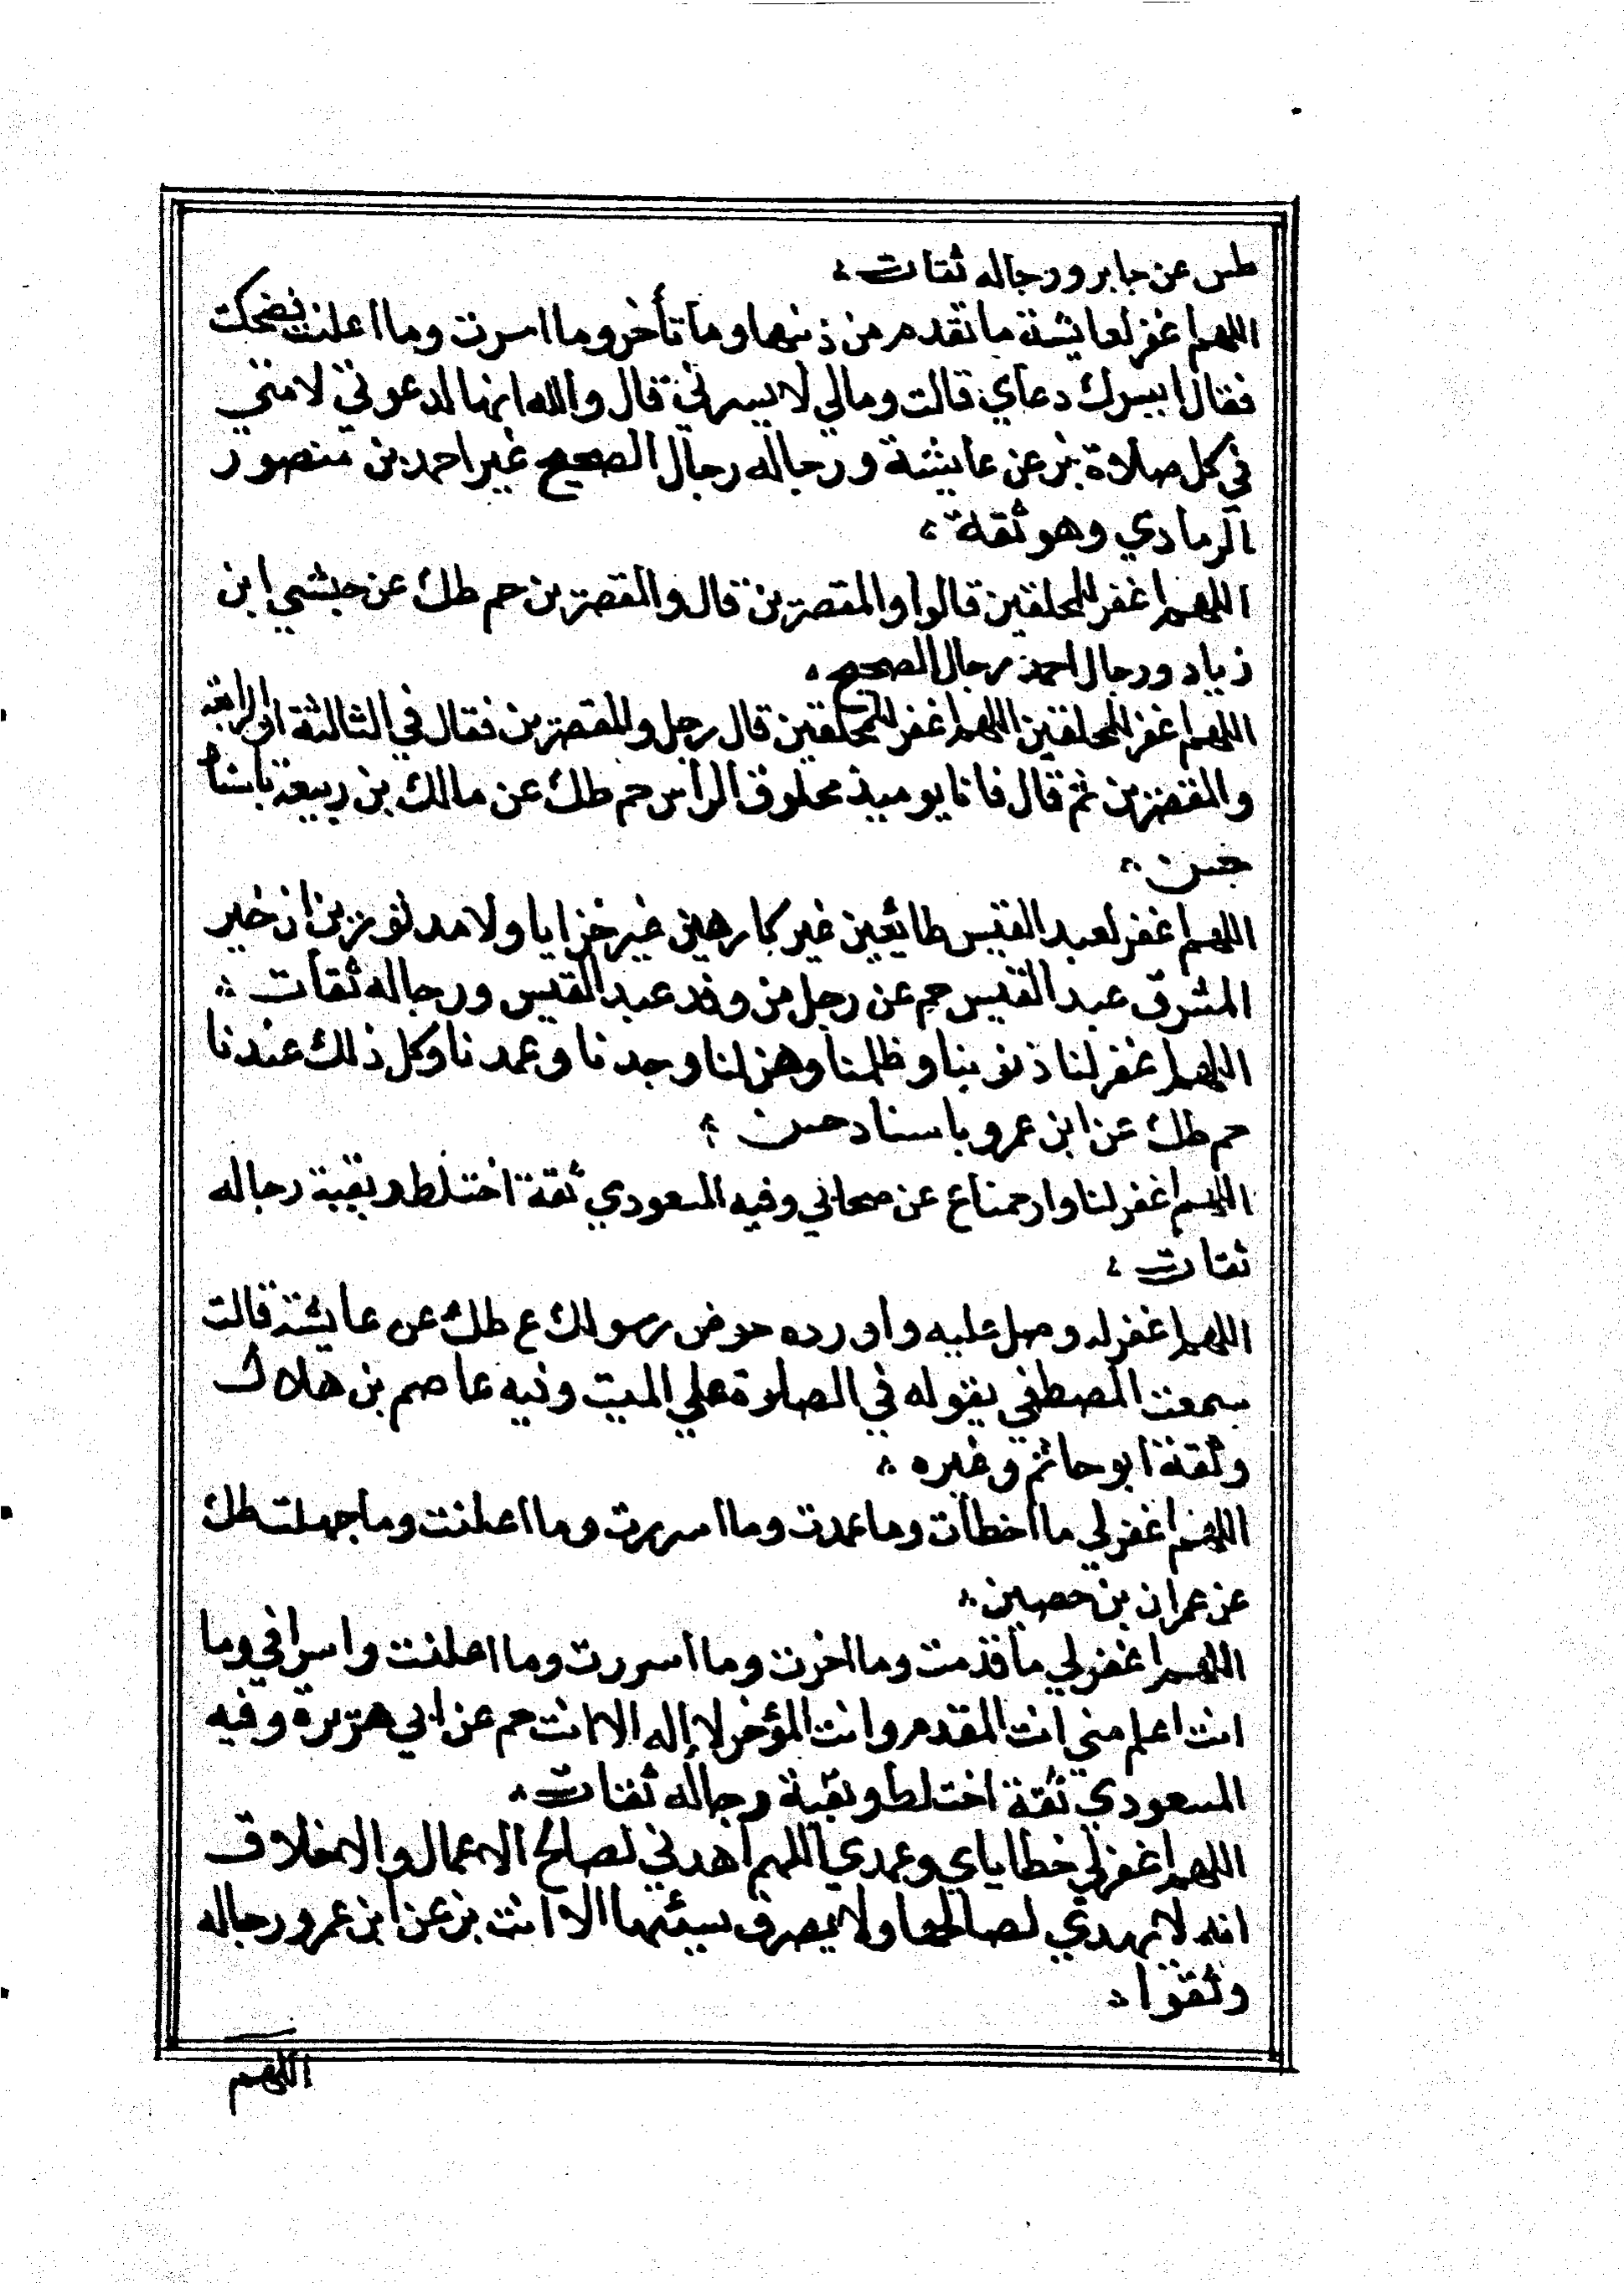 طس عن جابر ورجاله ثقات
اللهم اغفر لعايشة ما تقدم من ذنبها وما تأخر وما اسرت وما اعلنت فضحكت
فقال ايسرك دعاي قالت ومالي لا يسرني قال والله انها لدعوتي لامتي
في كل صلاة بز عن عايشة ورجاله رجال الصحيح غير احمد بن منصور
الرمادي وهو ثقة
اللهم اغفر للمحلقين قالوا والمقصرين قال والمقصرين حم طك عن حبشي ابن
زياد ورجال احمد رجال الصحيح
اللهم اغفر للمحلقين اللهم اغفر للمحلقين قال رجل وللمقصرين فقال في الثالثة او الرابعة
والمقصرين ثم قال فانا يوميذ محلوق الراس حم طك عن مالك بن ربيعة باسناد
حسن
اللهم اغفر لعبد القيس طائعين غير كارهين غير خزايا ولا موتورين ان خير
المشرق عبد القيس حم عن رجل من وفد عبد القيس ورجاله ثقات
اللهم اغفر لنا ذنوبنا وظلمنا وهزلنا وجدنا وعمدنا وكل ذلك عندنا
حم طك عن ابن عمرو باسناد حسن
اللهم اغفر لنا وارحمنا ع عن صحابي وفيه المسعودي ثقة اختلط وبقية رجاله
ثقات
اللهم اغفر له وصل عليه واورده حوض رسولك ع طك عن عايشة قالت
سمعت المصطفي يقوله في الصلوة علي الميت وفيه عاصم بن هلال
وثقة ابو حاتم وغيره
اللهم اغفر لي ما اخطأت وما عمدت وما اسررت وما اعلنت وما جهلت طك
عن عمران بن حصين
اللهم اغفر لي ما قدمت وما اخرت وما اسررت وما اعلنت واسرافي وما
انت اعلم مني انت المقدم وانت المؤخر لا إله الا انت حم عن ابي هريرة وفيه
المسعودي ثقة اختلط وبقية رجاله ثقات
اللهم اغفر لي خطاياي وعمدي اللهم اهدني لصالح الاعمال والاخلاق
انه لا يهدي لصالحها ولا يصرف سيئها الا انت بز عن ابن عمر ورجاله
وثقوا
اللهم